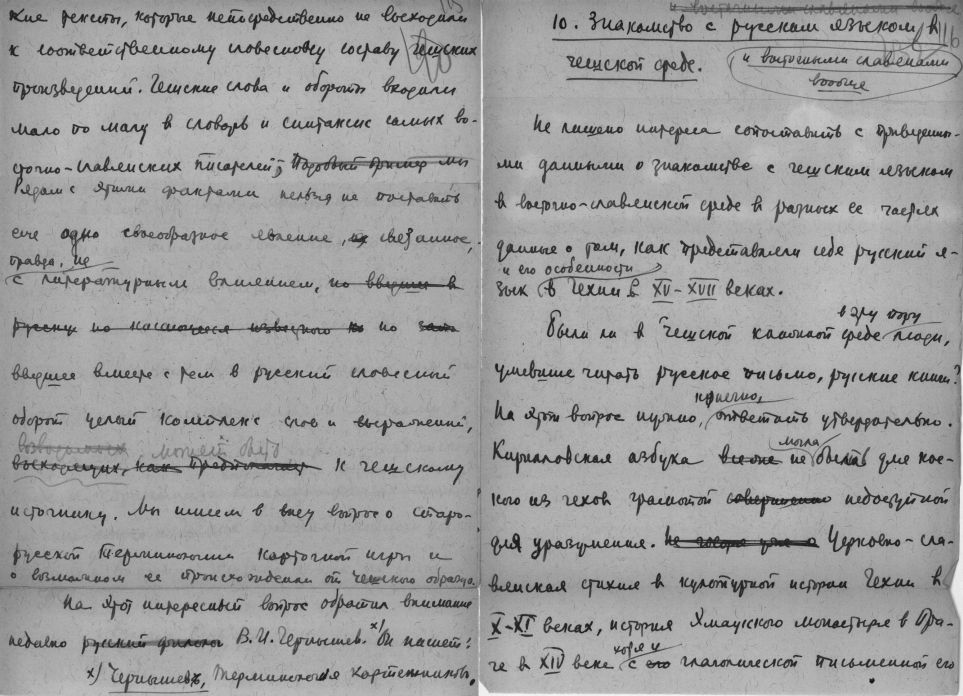 кие тексты, которые непосредственно не восходили
к соответственному словесному составу чешских
произведений. Чешские слова и обороты входили
мало по малу в словарь и синтаксис самых во-
сточно-славянских писателей;
Рядом с этими фактами нельзя не поставить
еще одно своеобразное явление, связанное,
правда, не
с литературным влиянием, но ввдшее в
русскую но касающееся но
ввдшее вместе с тем в русский словесный
оборот целый комплекс слов и выражений,
возводимых может быть
восходящих, как к чешскому
источнику. Мы имеем в виду вопрос о старо-
русской терминологии карточной игры и
о возможном ее происхождении от чешского образца.
На этот интересный вопрос обратил внимание
недавно русский филолог В. И. Чернышев. x) Он пишет:
x) Чернышев, Терминология картежников,
116
10. Знакомство с русским языком в
чешской среде. и восточными славянами
вообще
Не лишено интереса сопоставить с приведенны-
ми данными о знакомстве с чешским языком
в восточно-славянской среде в разных ее частях
данные о том, как представляли себе русский я-
и его особенности
зык в Чехии в XV-XVII веках.
в эту пору
Были ли в чешской книжной среде люди,
умевшие читать русское письмо, русские книги?
конечно,
На этот вопрос нужно, ответить утвердительно.
могла
Кирилловская азбука не быть для кое-
кого из чехов грамотой совершенно недоступной
для уразумения. Церковно-сла-
вянская стихия в культурной истории Чехии в
X-XI веках, история Эмаусского монастыря в Пра-
хотя и
ге в XIV веке с его глаголической письменной его